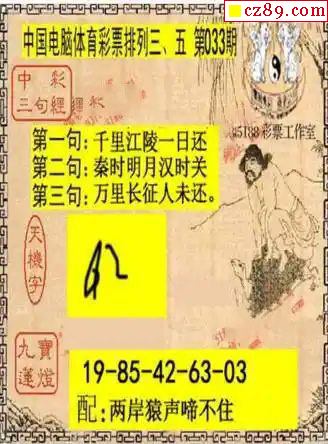 cz89.com
中国电脑体育彩票排列三、五 第033期
中彩
三句經
85188彩票工作室
第一句:千里江陵一日还
第二句:秦时明月汉时关
第三句:万里长征人未还。
天機字
九寶蓮燈
19-85-42-63-03
配:两岸猿声啼不住